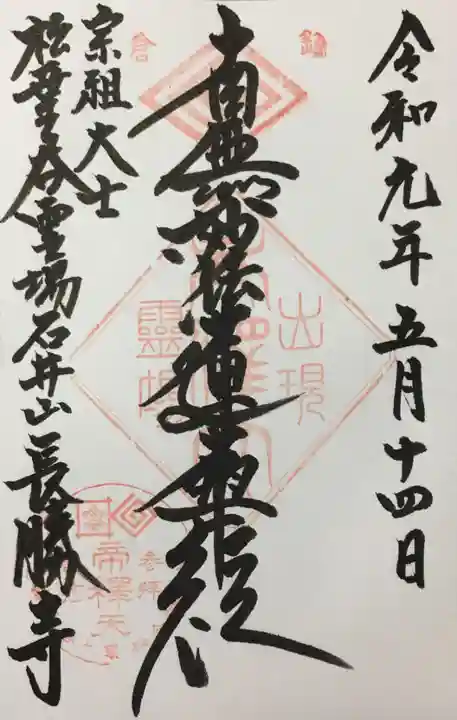 令和元年五月十四日
鎌倉
南無妙法蓮華経
出現
靈場
宗祖大士
松葉谷霊場石井山長勝寺
帝釋天